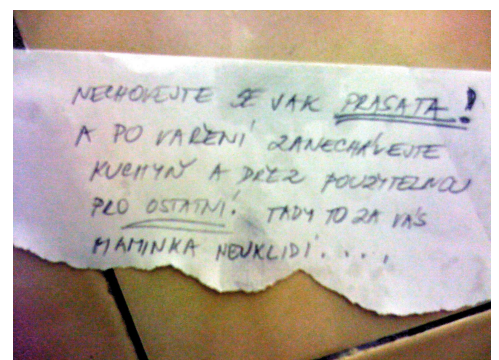 NECHOVEJTE SE JAK PRASATA!
A PO VAŘENÍ ZANECHÁVEJTE
KUCHYŇ A DŘEZ POUŽITELNOU
PRO OSTATNÍ! TADY TO ZA VÁS
MAMINKA NEUKLIDÍ.....